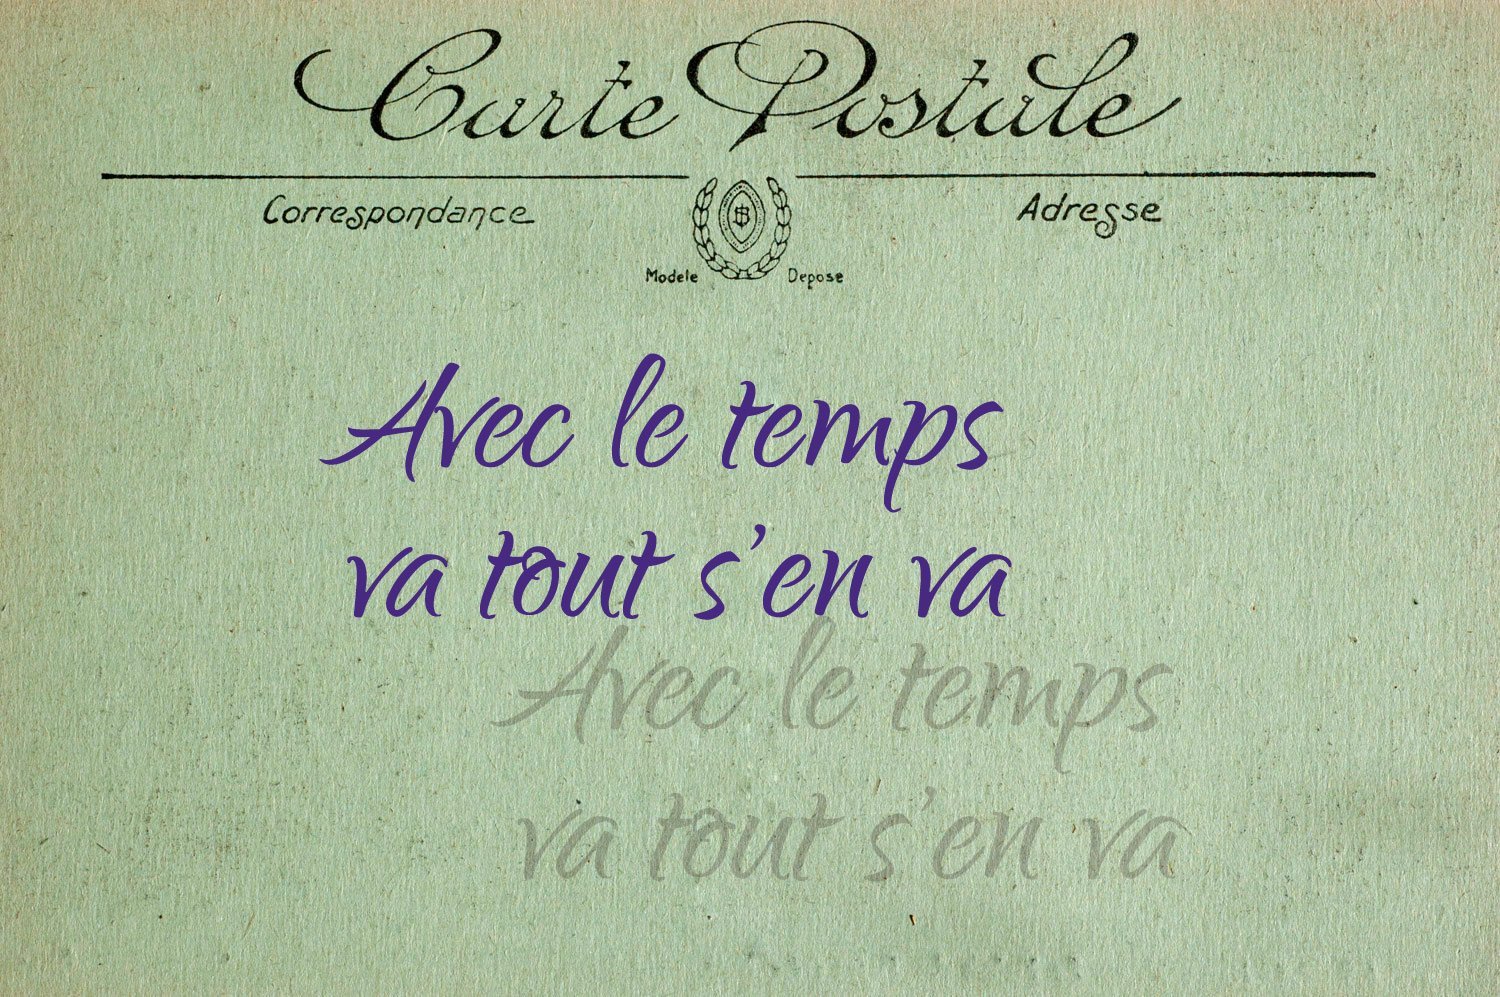 Carte Postale
Correspondance
Adresse
Modele Depose
Avec le temps
va tout s'en va
Avec le temps
va tout s'en va